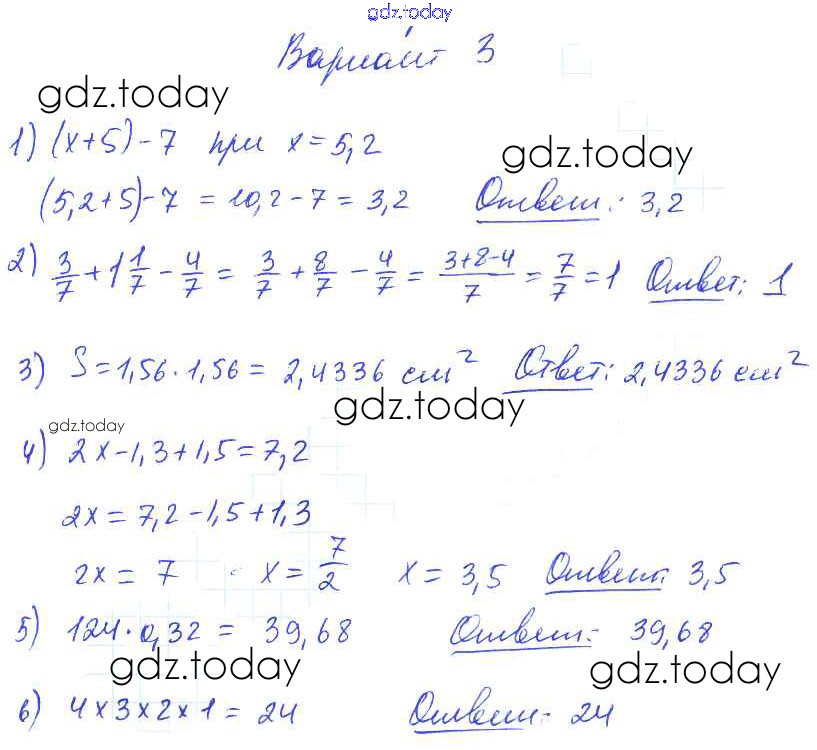 gdz.today
Вариант 3
gdz.today
1) (x+5)-7 при x=5,2
gdz.today
(5,2+5)-7 = 10,2-7 = 3,2 Ответ: 3,2
2) 3/7 + 1 1/7 - 4/7 = 3/7 + 8/7 - 4/7 = (3+8-4)/7 = 7/7 = 1 Ответ: 1
3) S = 1,56 · 1,56 = 2,4336 см² Ответ: 2,4336 см²
gdz.today
gdz.today
4) 2x-1,3+1,5=7,2
2x = 7,2-1,5+1,3
2x = 7 x = 7/2 x = 3,5 Ответ: 3,5
5) 124 · 0,32 = 39,68 Ответ: 39,68
gdz.today gdz.today
6) 4×3×2×1 = 24 Ответ: 24